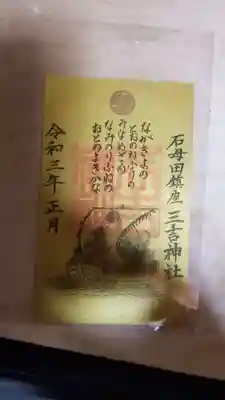 石母田鎮座 三吉神社
なかきよの
とおのねふりの
みなめさめ
なみのりふねの
おとのよきかな
令和三年 正月